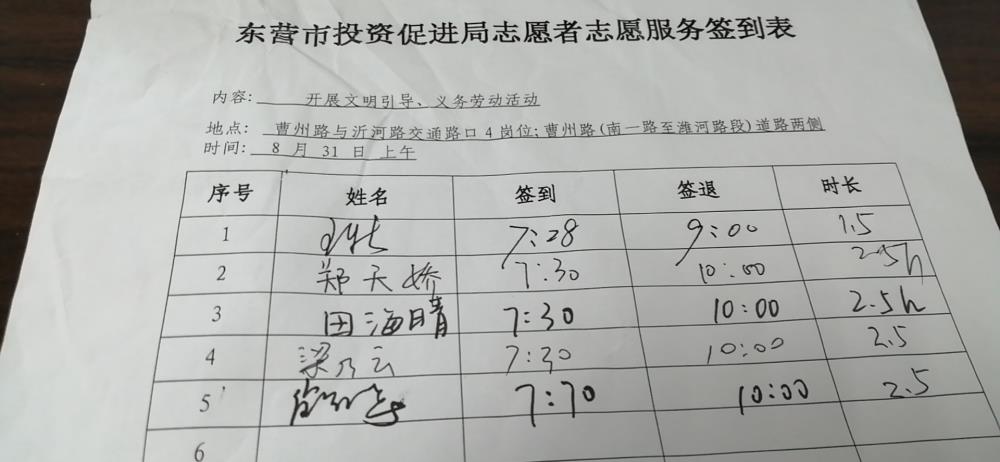 东营市投资促进局志愿者志愿服务签到表
内容: 开展文明引导、义务劳动活动
地点: 曹州路与沂河路交通路口4岗位;曹州路(南一路至潍河路段)道路两侧
时间: 8 月 31 日 上午
序号 姓名 签到 签退 时长
1 7:28 9:00 1.5
2 郑天娇 7:30 10:00 2.5h
3 田海晴 7:30 10:00 2.5h
4 梁乃云 7:30 10:00 2.5
5 7:70 10:00 2.5
6